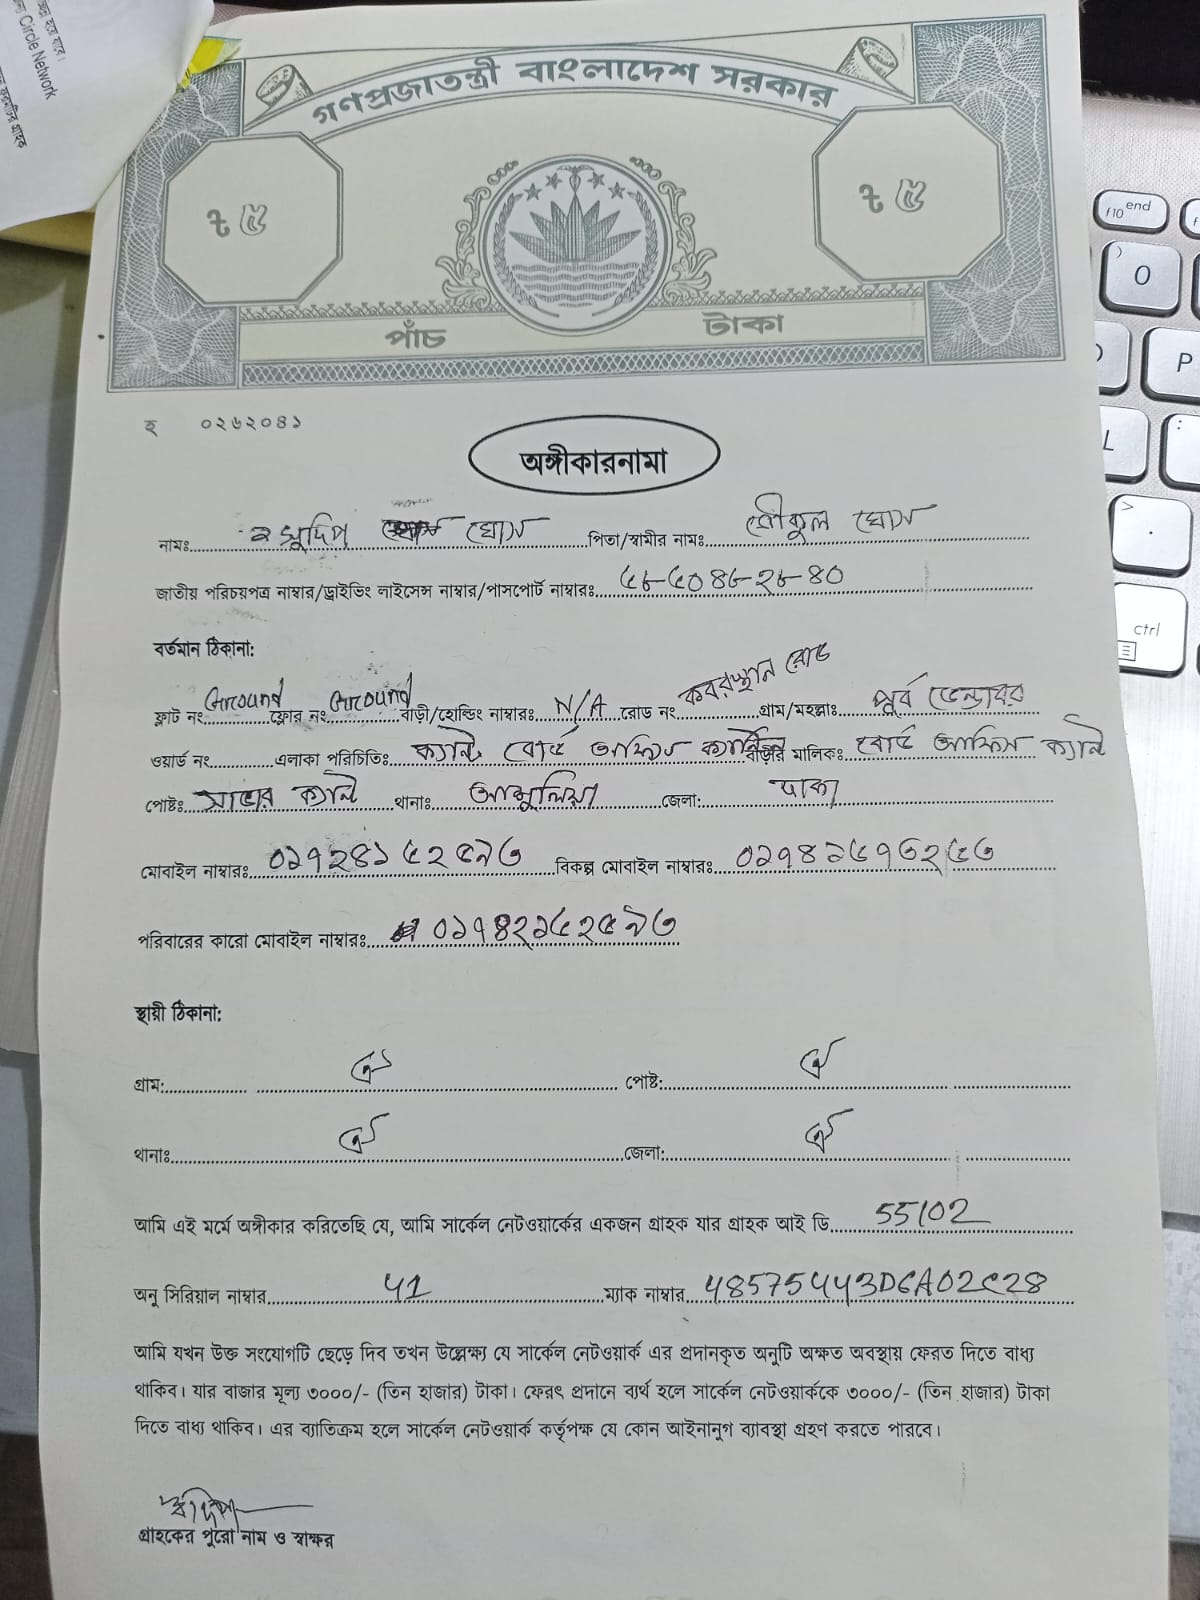 Circle Network
গণপ্রজাতন্ত্রী বাংলাদেশ সরকার
৳ ৫
৳ ৫
পাঁচ টাকা
হ ০২৬২০৪১
অঙ্গীকারনামা
নামঃ সুদিপ ঘোস পিতা/স্বামীর নামঃ ঘোস
জাতীয় পরিচয়পত্র নাম্বার/ড্রাইভিং লাইসেন্স নাম্বার/পাসপোর্ট নাম্বারঃ
বর্তমান ঠিকানা:
ফ্লাট নং Ground ফ্লোর নং Ground বাড়ী/হোল্ডিং নাম্বারঃ N/A রোড নং কবরস্থান রোড গ্রাম/মহল্লাঃ পূর্ব ডেন্ডাবর
ওয়ার্ড নং এলাকা পরিচিতিঃ ক্যান্ট বোর্ড অফিস বাড়ির মালিকঃ বোর্ড অফিস ক্যান্ট
পোষ্টঃ সাভার ক্যান্ট থানাঃ আশুলিয়া জেলা: ঢাকা
মোবাইল নাম্বারঃ বিকল্প মোবাইল নাম্বারঃ
পরিবারের কারো মোবাইল নাম্বারঃ
স্থায়ী ঠিকানা:
গ্রাম: ঐ পোষ্ট: ঐ
থানাঃ ঐ জেলা: ঐ
আমি এই মর্মে অঙ্গীকার করিতেছি যে, আমি সার্কেল নেটওয়ার্কের একজন গ্রাহক যার গ্রাহক আই ডি 55102
অনু সিরিয়াল নাম্বার 41 ম্যাক নাম্বার
আমি যখন উক্ত সংযোগটি ছেড়ে দিব তখন উল্লেক্ষ্য যে সার্কেল নেটওয়ার্ক এর প্রদানকৃত অনুটি অক্ষত অবস্থায় ফেরত দিতে বাধ্য
থাকিব। যার বাজার মূল্য ৩০০০/- (তিন হাজার) টাকা। ফেরৎ প্রদানে ব্যর্থ হলে সার্কেল নেটওয়ার্ককে ৩০০০/- (তিন হাজার) টাকা
দিতে বাধ্য থাকিব। এর ব্যাতিক্রম হলে সার্কেল নেটওয়ার্ক কর্তৃপক্ষ যে কোন আইনানুগ ব্যাবস্থা গ্রহণ করতে পারবে।
গ্রাহকের পুরো নাম ও স্বাক্ষর
f10 end
0
P
L
ctrl